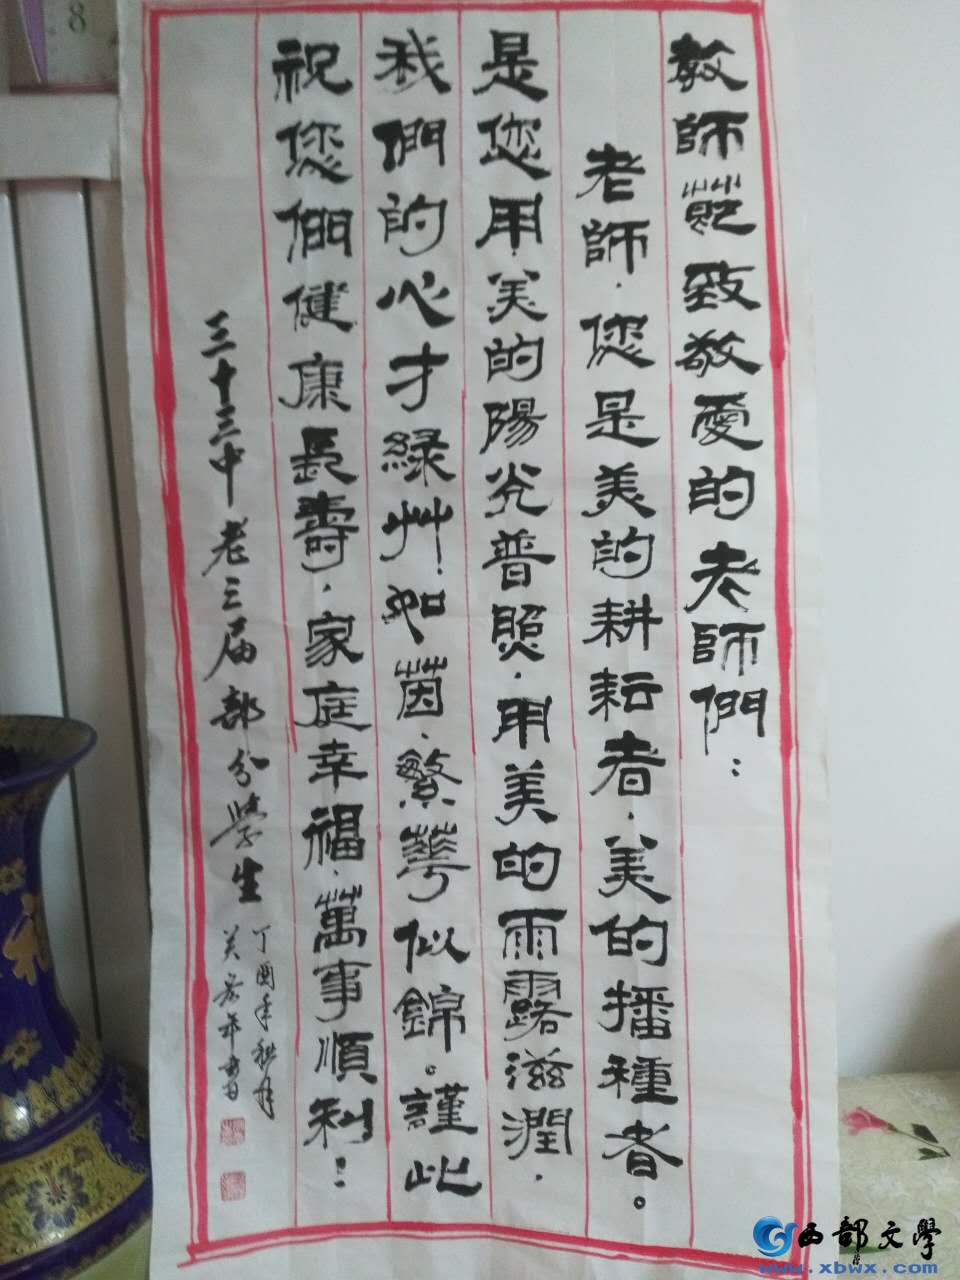 教師節致敬愛的老師們：
老師，您是美的耕耘者，美的播種者。
是您用美的陽光普照，用美的雨露滋潤，
我們的心才綠艸如茵，繁華似錦。謹此
祝您們健康長壽，家庭幸福，萬事順利！
三十三中老三届部分學生
丁酉年秋月
年書
8
西部文學
www.xbwx.com